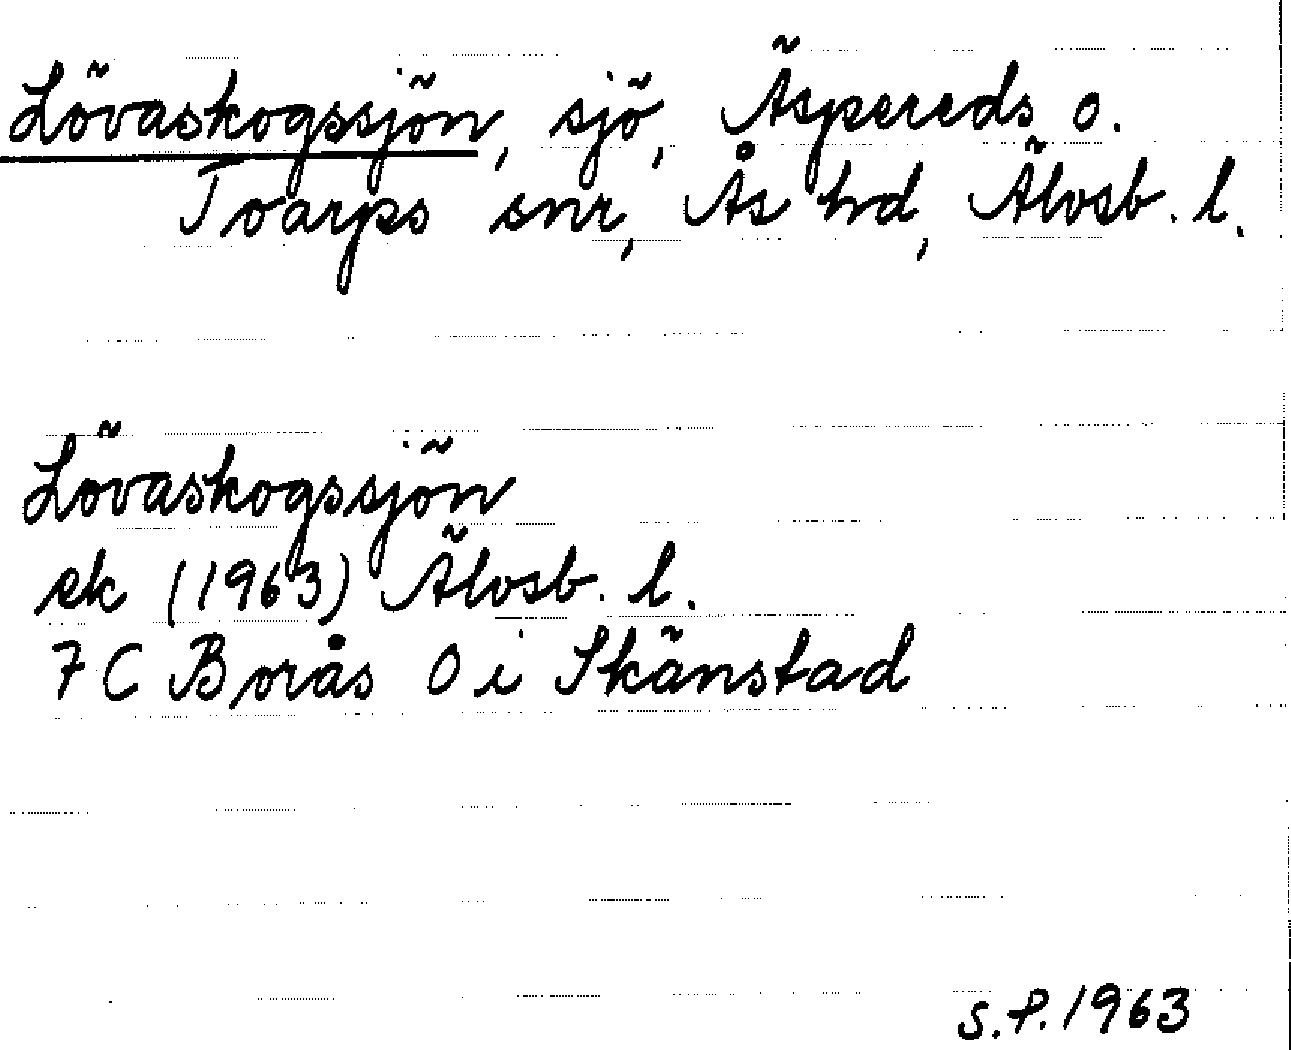 Lövaskogssjön, sjö, Äspereds o.
Toarps snr, Ås hd, Älvsb. l.
Lövaskogssjön
ek (1963) Älvsb. l.
7 C Borås 0 i Skänstad
S.P. 1963